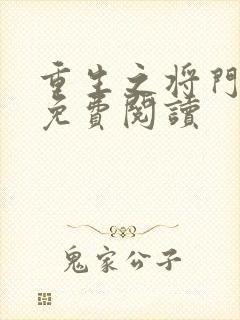 重生之将門
免費閱讀
鬼家公子